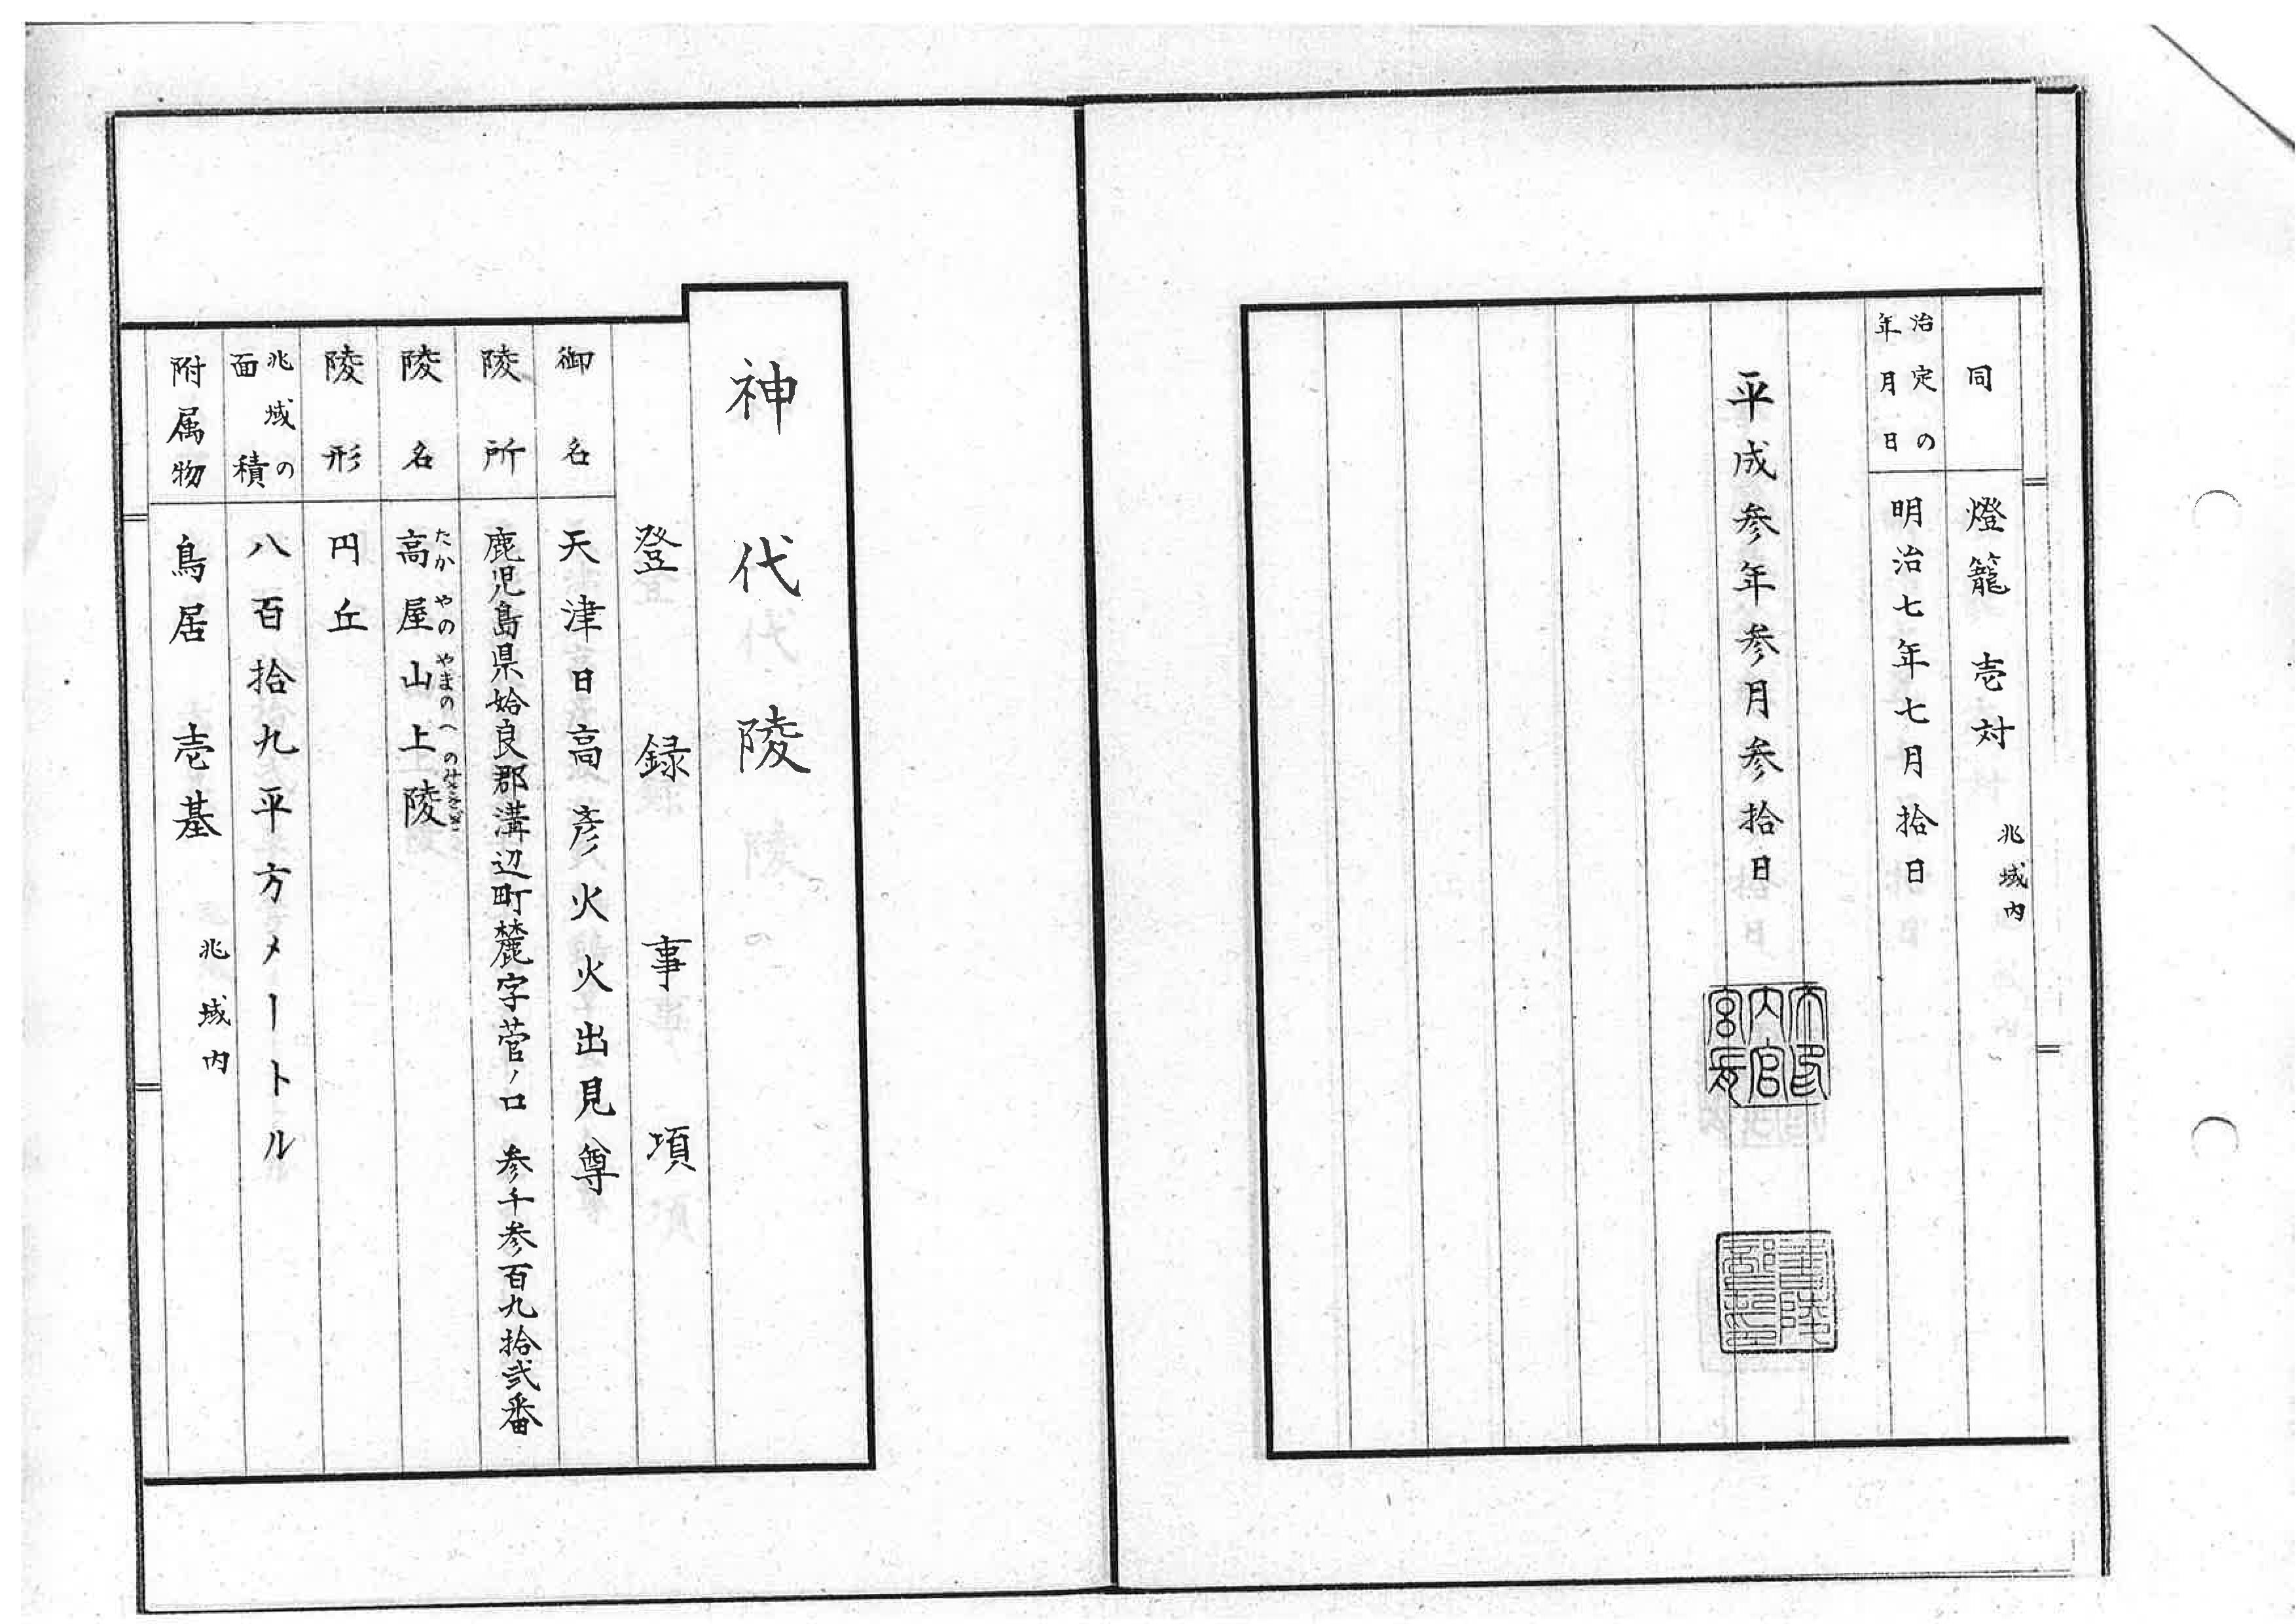 同
燈籠 壱対 兆域内
治定の
年月日
明治七年七月拾日
平成参年参月参拾日
神代陵
登録事項
御名
天津日高彦火火出見尊
陵所
鹿児島県姶良郡溝辺町麓字菅ノ口 参千参百九拾弐番
陵名
たか やの やまの へ のみささぎ
高屋山上陵
陵形
円丘
兆域の
面積
八百拾九平方メートル
附属物
鳥居 壱基 兆域内